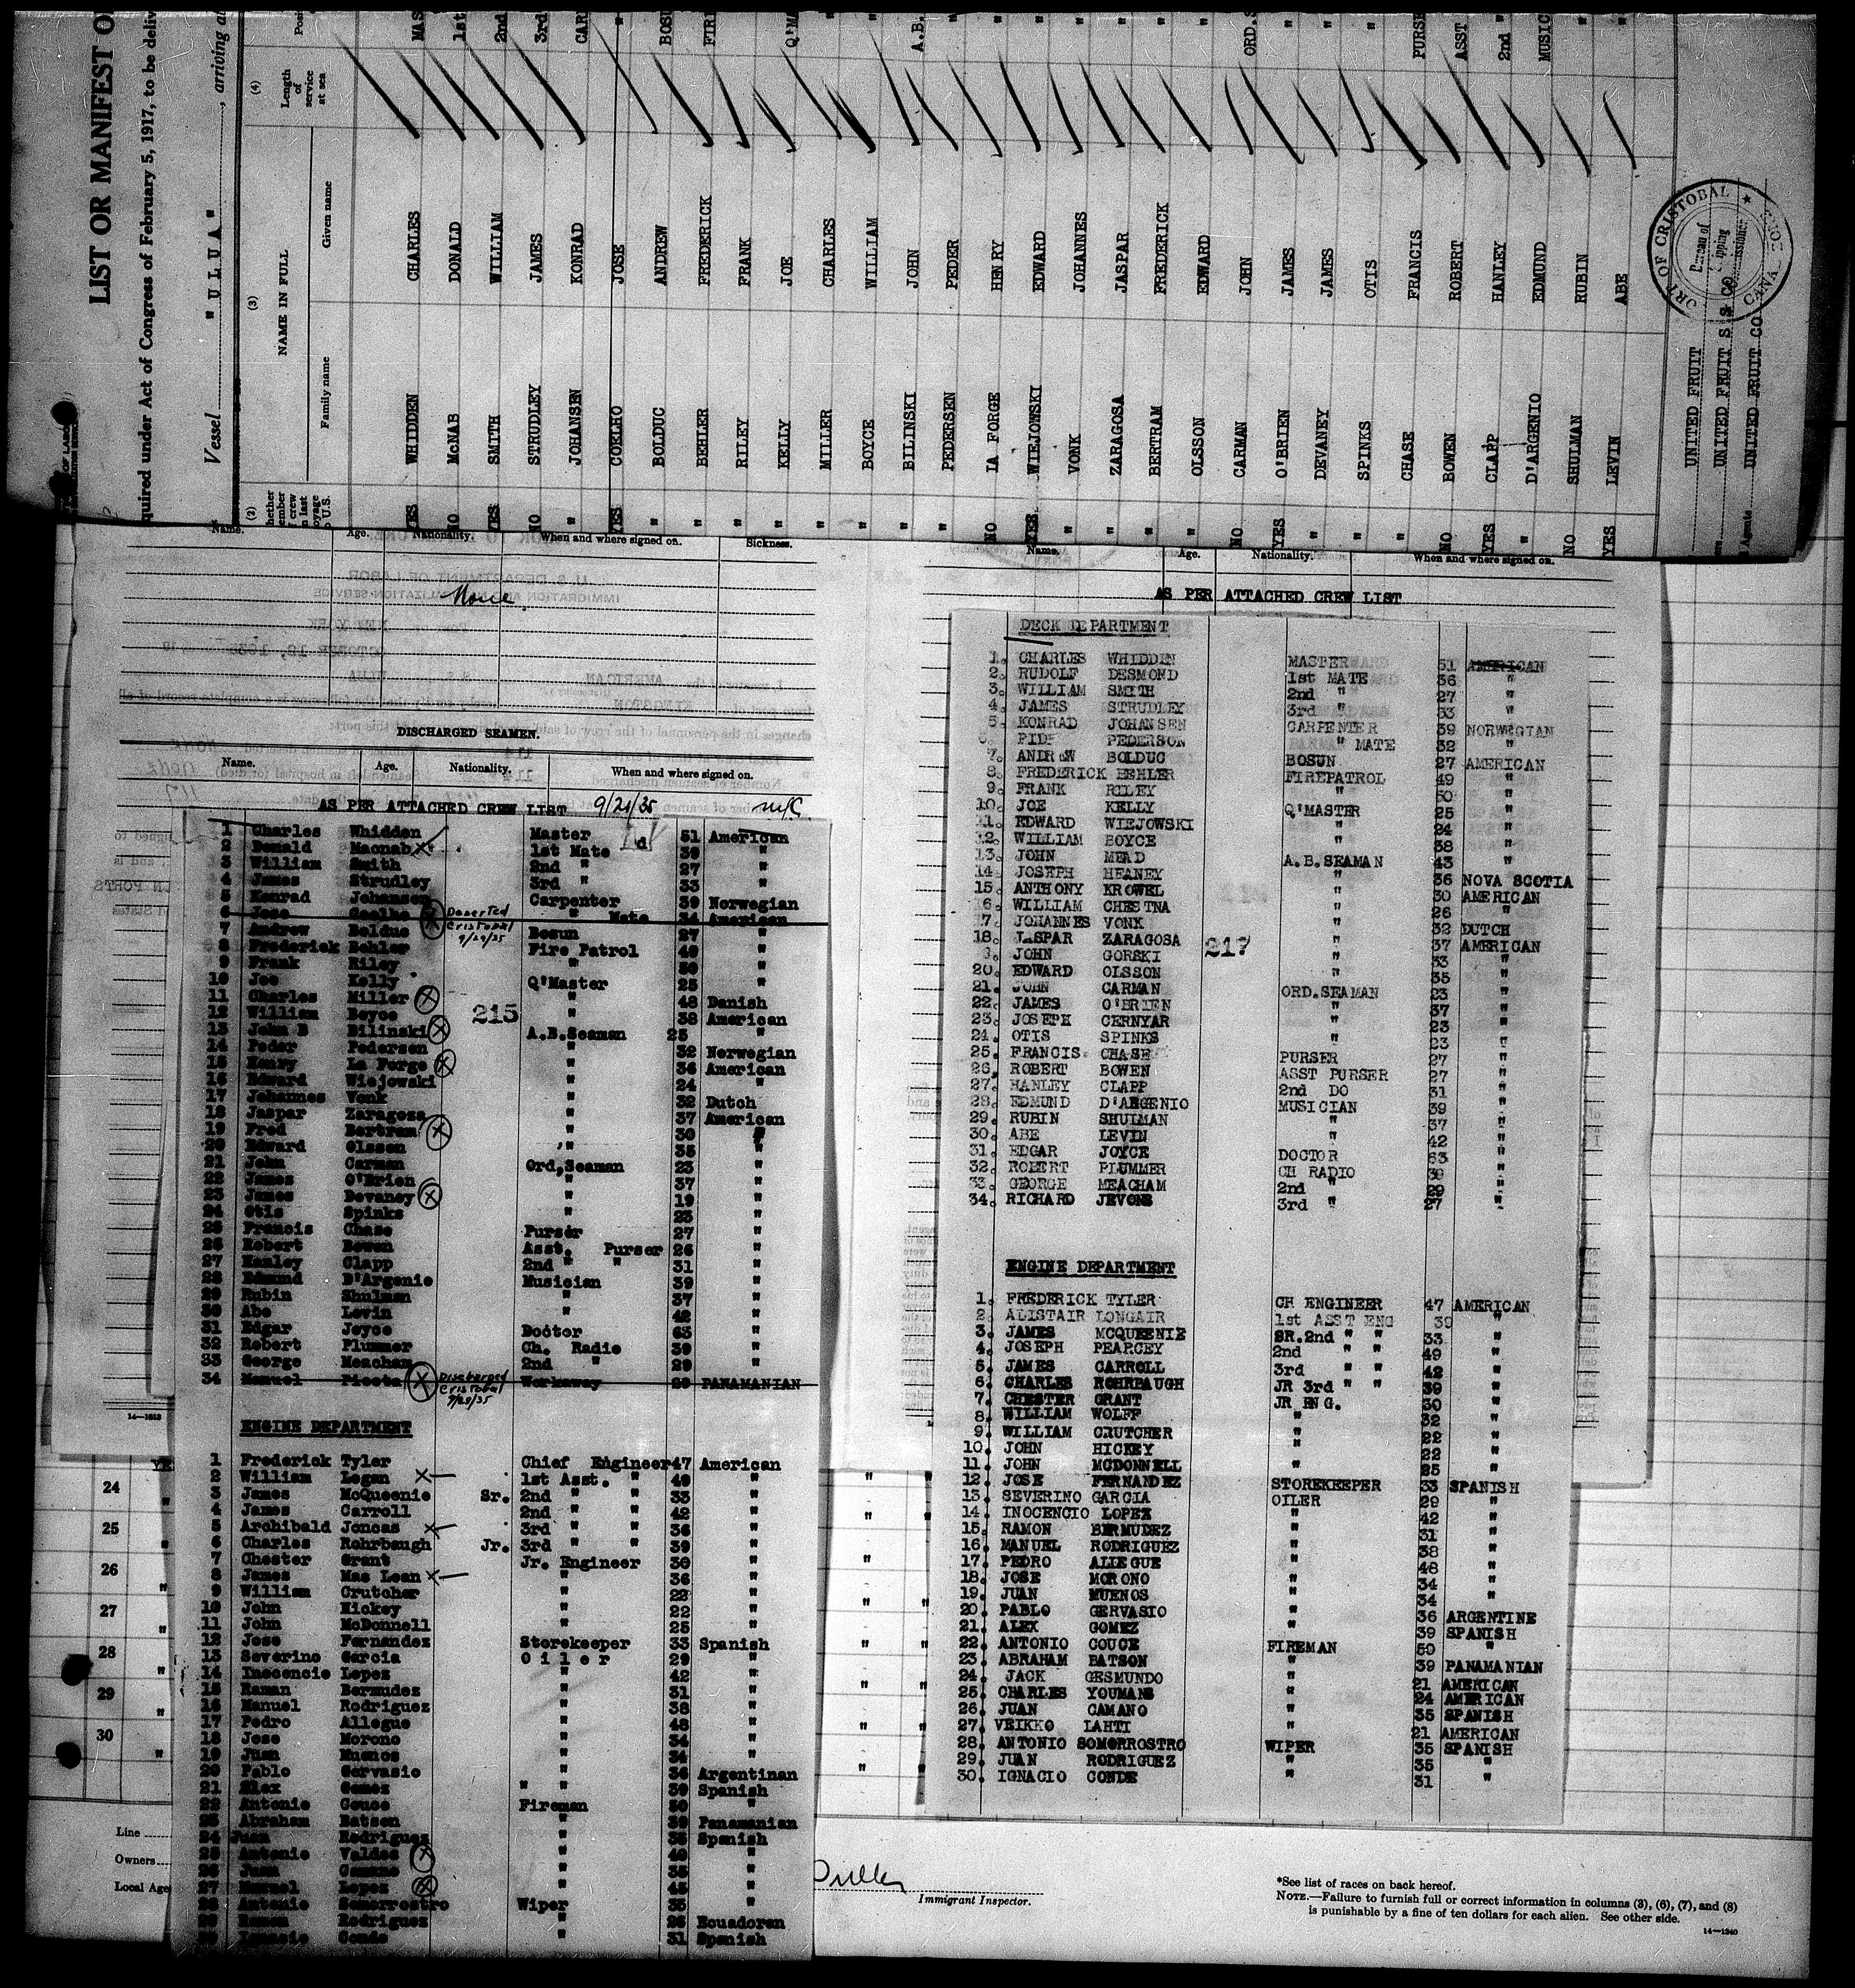 LIST OR MANIFEST O
quired under Act of Congress of February 5, 1917, to be deliv
Vessel " U L U A " , arriving a
(2) (3) (4)
NAME IN FULL
Family name Given name
Length of service at sea
YES WHIDDEN CHARLES MAS
NO McNAB DONALD 1st
YES SMITH WILLIAM 2nd
NO STRUDLEY JAMES 3rd
" JOHANSEN KONRAD CAR
YES COELHO JOSE "
" BOLDUC ANDREW BOSU
" BEHLER FREDERICK FIR
" RILEY FRANK "
" KELLY JOE Q'MA
" MILLER CHARLES "
" BOYCE WILLIAM "
" BILINSKI JOHN A.B.
" PEDERSEN PEDER "
NO LA FORGE HENRY "
YES WIEJOWSKI EDWARD "
" VONK JOHANNES "
" ZARAGOSA JASPAR "
" BERTRAM FREDERICK "
" OLSSON EDWARD "
NO CARMAN JOHN ORD.S
YES O'BRIEN JAMES "
" DEVANEY JAMES "
" SPINKS OTIS "
" CHASE FRANCIS PURSE
NO BOWEN ROBERT ASST
YES CLAPP HANLEY 2nd
" D'ARGENIO EDMUND MUSIC
NO SHULMAN RUBIN "
YES LEVIN ABE "
UNITED FRUIT
UNITED FRUIT S S CO
UNITED FRUIT CO
PORT OF CRISTOBAL
Name. Age. Nationality. When and where signed on. Sickness.
None
DISCHARGED SEAMEN.
Name. Age. Nationality. When and where signed on.
AS PER ATTACHED CREW LIST 9/20/35
1 Charles Whidden Master 51 American
2 Donald Macnab 1st Mate 39 "
3 William Smith 2nd " 27 "
4 James Strudley 3rd " 33 "
5 Konrad Johansen Carpenter 39 Norwegian
6 Jose Coelho Deserted Cristobal 9/29/35 " Mate 34 American
7 Andrew Bolduc Bosun 27 "
8 Frederick Behler Fire Patrol 49 "
9 Frank Riley " 50 "
10 Joe Kelly Q'Master 25 "
11 Charles Miller " 48 Danish
12 William Boyce 215 " 38 American
13 John B Bilinski A.B.Seaman 25 "
14 Peder Pedersen " 32 Norwegian
15 Henry La Forge " 36 American
16 Edward Wiejowski " 24 "
17 Johannes Vonk " 32 Dutch
18 Jaspar Zaragoza " 37 American
19 Fred Bertram " 30 "
20 Edward Olssen " 35 "
21 John Carman Ord,Seaman 23 "
22 James O'Brien " 37 "
23 James Devaney " 19 "
24 Otis Spinks " 23 "
25 Francis Chase Purser 27 "
26 Robert Bowen Asst. Purser 26 "
27 Hanley Clapp 2nd " " 31 "
28 Edmund D'Argenio Musician 39 "
29 Rubin Shulman " 37 "
30 Abe Levin " 42 "
31 Edgar Joyce Doctor 63 "
32 Robert Plummer Ch. Radio 39 "
33 George Meacham 2nd " 29 "
34 Manuel Discharged Cristobal 9/28/35 Workaway PANAMANIAN
ENGINE DEPARTMENT
1 Frederick Tyler Chief Engineer 47 American
2 William Logan 1st Asst. " 49 "
3 James McQueenie Sr. 2nd " " 33 "
4 James Carroll 2nd " " 42 "
5 Archibald Joncas 3rd " " 36 "
6 Charles Rohrbaugh Jr. 3rd " " 39 "
7 Chester Grant Jr. Engineer 30 "
8 James Mac Lean " 36 "
9 William Crutcher " 22 "
10 John Hickey " 22 "
11 John McDonnell " 25 "
12 Jose Fernandez Storekeeper 33 Spanish
13 Severino Garcia O i l e r 29 "
14 Inocencio Lopez " 42 "
15 Raman Bermudez " 31 "
16 Manuel Rodriguez " 38 "
17 Pedro Allegue " 48 "
18 Jose Morono " 34 "
19 Juan Muenos " 34 "
20 Pablo Gervasio " 36 Argentinan
21 Alex Gomez " " 39 Spanish
22 Antonio Couce Fireman 50 "
23 Abraham Batson " 39 Panamanian
24 Juan Rodriguez " 35 Spanish
25 Antonio Valdes " 40 "
26 Juan Camano " 35 "
27 Manuel Lopez " 45 "
28 Antonio Somorrostro Wiper 35 "
29 Ramon Rodriguez " 26 Ecuadoran
30 Ignacio Conde " 31 Spanish
Name. Age. Nationality. When and where signed on.
AS PER ATTACHED CREW LIST
DECK DEPARTMENT
1. CHARLES WHIDDEN MASTER 51 AMERICAN
2. RUDOLF DESMOND 1st MATE 36 "
3. WILLIAM SMITH 2nd " 27 "
4. JAMES STRUDLEY 3rd " 33 "
5. KONRAD JOHANSEN CARPENTER 39 NORWEGIAN
PEDERSON " MATE 32 "
7. ANDREW BOLDUC BOSUN 27 AMERICAN
8. FREDERICK BEHLER FIREPATROL 49 "
9. FRANK RILEY " 50 "
10. JOE KELLY Q'MASTER 25 "
11. EDWARD WIEJOWSKI " 24 "
12. WILLIAM BOYCE " 38 "
13. JOHN MEAD A.B.SEAMAN 43 "
14. JOSEPH HEANEY " 36 NOVA SCOTIA
15. ANTHONY KROWEL " 30 AMERICAN
16. WILLIAM CHESTNA " 26 "
17. JOHANNES VONK " 32 DUTCH
18. JASPAR ZARAGOSA 217 " 37 AMERICAN
9. JOHN GORSKI " 33 "
20. EDWARD OLSSON " 35 "
21. JOHN CARMAN ORD.SEAMAN 23 "
22. JAMES O'BRIEN " 37 "
23. JOSEPH CERNYAR " 23 "
24. OTIS SPINKS " 23 "
25. FRANCIS CHASE PURSER 27 "
26. ROBERT BOWEN ASST PURSER 27 "
27. HANLEY CLAPP 2nd DO 31 "
28. EDMUND D'ARGENIO MUSICIAN 39 "
29. RUBIN SHULMAN " 37 "
30. ABE LEVIN " 42 "
31. EDGAR JOYCE DOCTOR 63 "
32. ROBERT PLUMMER CH RADIO 39 "
33. GEORGE MEACHAM 2nd " 29 "
34. RICHARD JEVONS 3rd " 27 "
ENGINE DEPARTMENT
1. FREDERICK TYLER CH ENGINEER 47 AMERICAN
2. ALISTAIR LONGAIR 1st ASST ENG 39 "
3. JAMES MCQUEENIE SR.2nd " " 33 "
4. JOSEPH PEARCEY 2nd " " 49 "
5. JAMES CARROLL 3rd " " 42 "
6. CHARLES ROHRBAUGH JR 3rd " " 39 "
7. CHESTER GRANT JR ENG. 30 "
8. WILLIAM WOLFF " 32 "
9. WILLIAM CRUTCHER " 22 "
10. JOHN HICKEY " 22 "
11. JOHN MCDONNELL " 25 "
12. JOSE FERNANDEZ STOREKEEPER 33 SPANISH
13. SEVERINO GARCIA OILER 29 "
14. INOCENCIO LOPEZ " 42 "
15. RAMON BERMUDEZ " 31 "
16. MANUEL RODRIGUEZ " 38 "
17. PEDRO ALLEGUE " 48 "
18. JOSE MORONO " 34 "
19. JUAN MUENOS " 34 "
20. PABLO GERVASIO " 36 ARGENTINE
21. ALEX GOMEZ " 39 SPANISH
22. ANTONIO COUCE FIREMAN 50 "
23. ABRAHAM BATSON " 39 PANAMANIAN
24. JACK GESMUNDO " 21 AMERICAN
25. CHARLES YOUMANS " 24 AMERICAN
26. JUAN CAMANO " 35 SPANISH
27. VEIKKO LAHTI " 21 AMERICAN
28. ANTONIO SOMORROSTRO WIPER 35 SPANISH
29. JUAN RODRIGUEZ " 35 "
30. IGNACIO CONDE " 31 "
24
25
26
27
28
29
30
Line
Owners
Local Age
Immigrant Inspector.
*See list of races on back hereof.
NOTE.—Failure to furnish full or correct information in columns (3), (6), (7), and (8)
is punishable by a fine of ten dollars for each alien. See other side.
14—1240